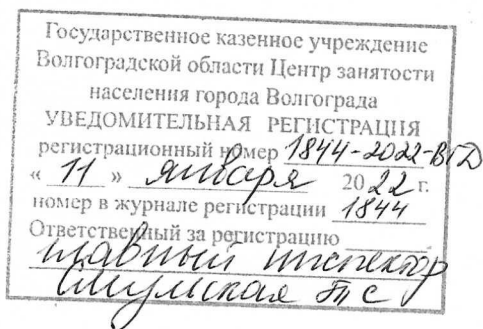 Государственное казенное учреждение
Волгоградской области Центр занятости
населения города Волгограда
УВЕДОМИТЕЛЬНАЯ РЕГИСТРАЦИЯ
регистрационный номер 1844-2022-ВГД
« 11 » января 2022 г.
номер в журнале регистрации 1844
Ответственный за регистрацию
главный инспектор
Т С